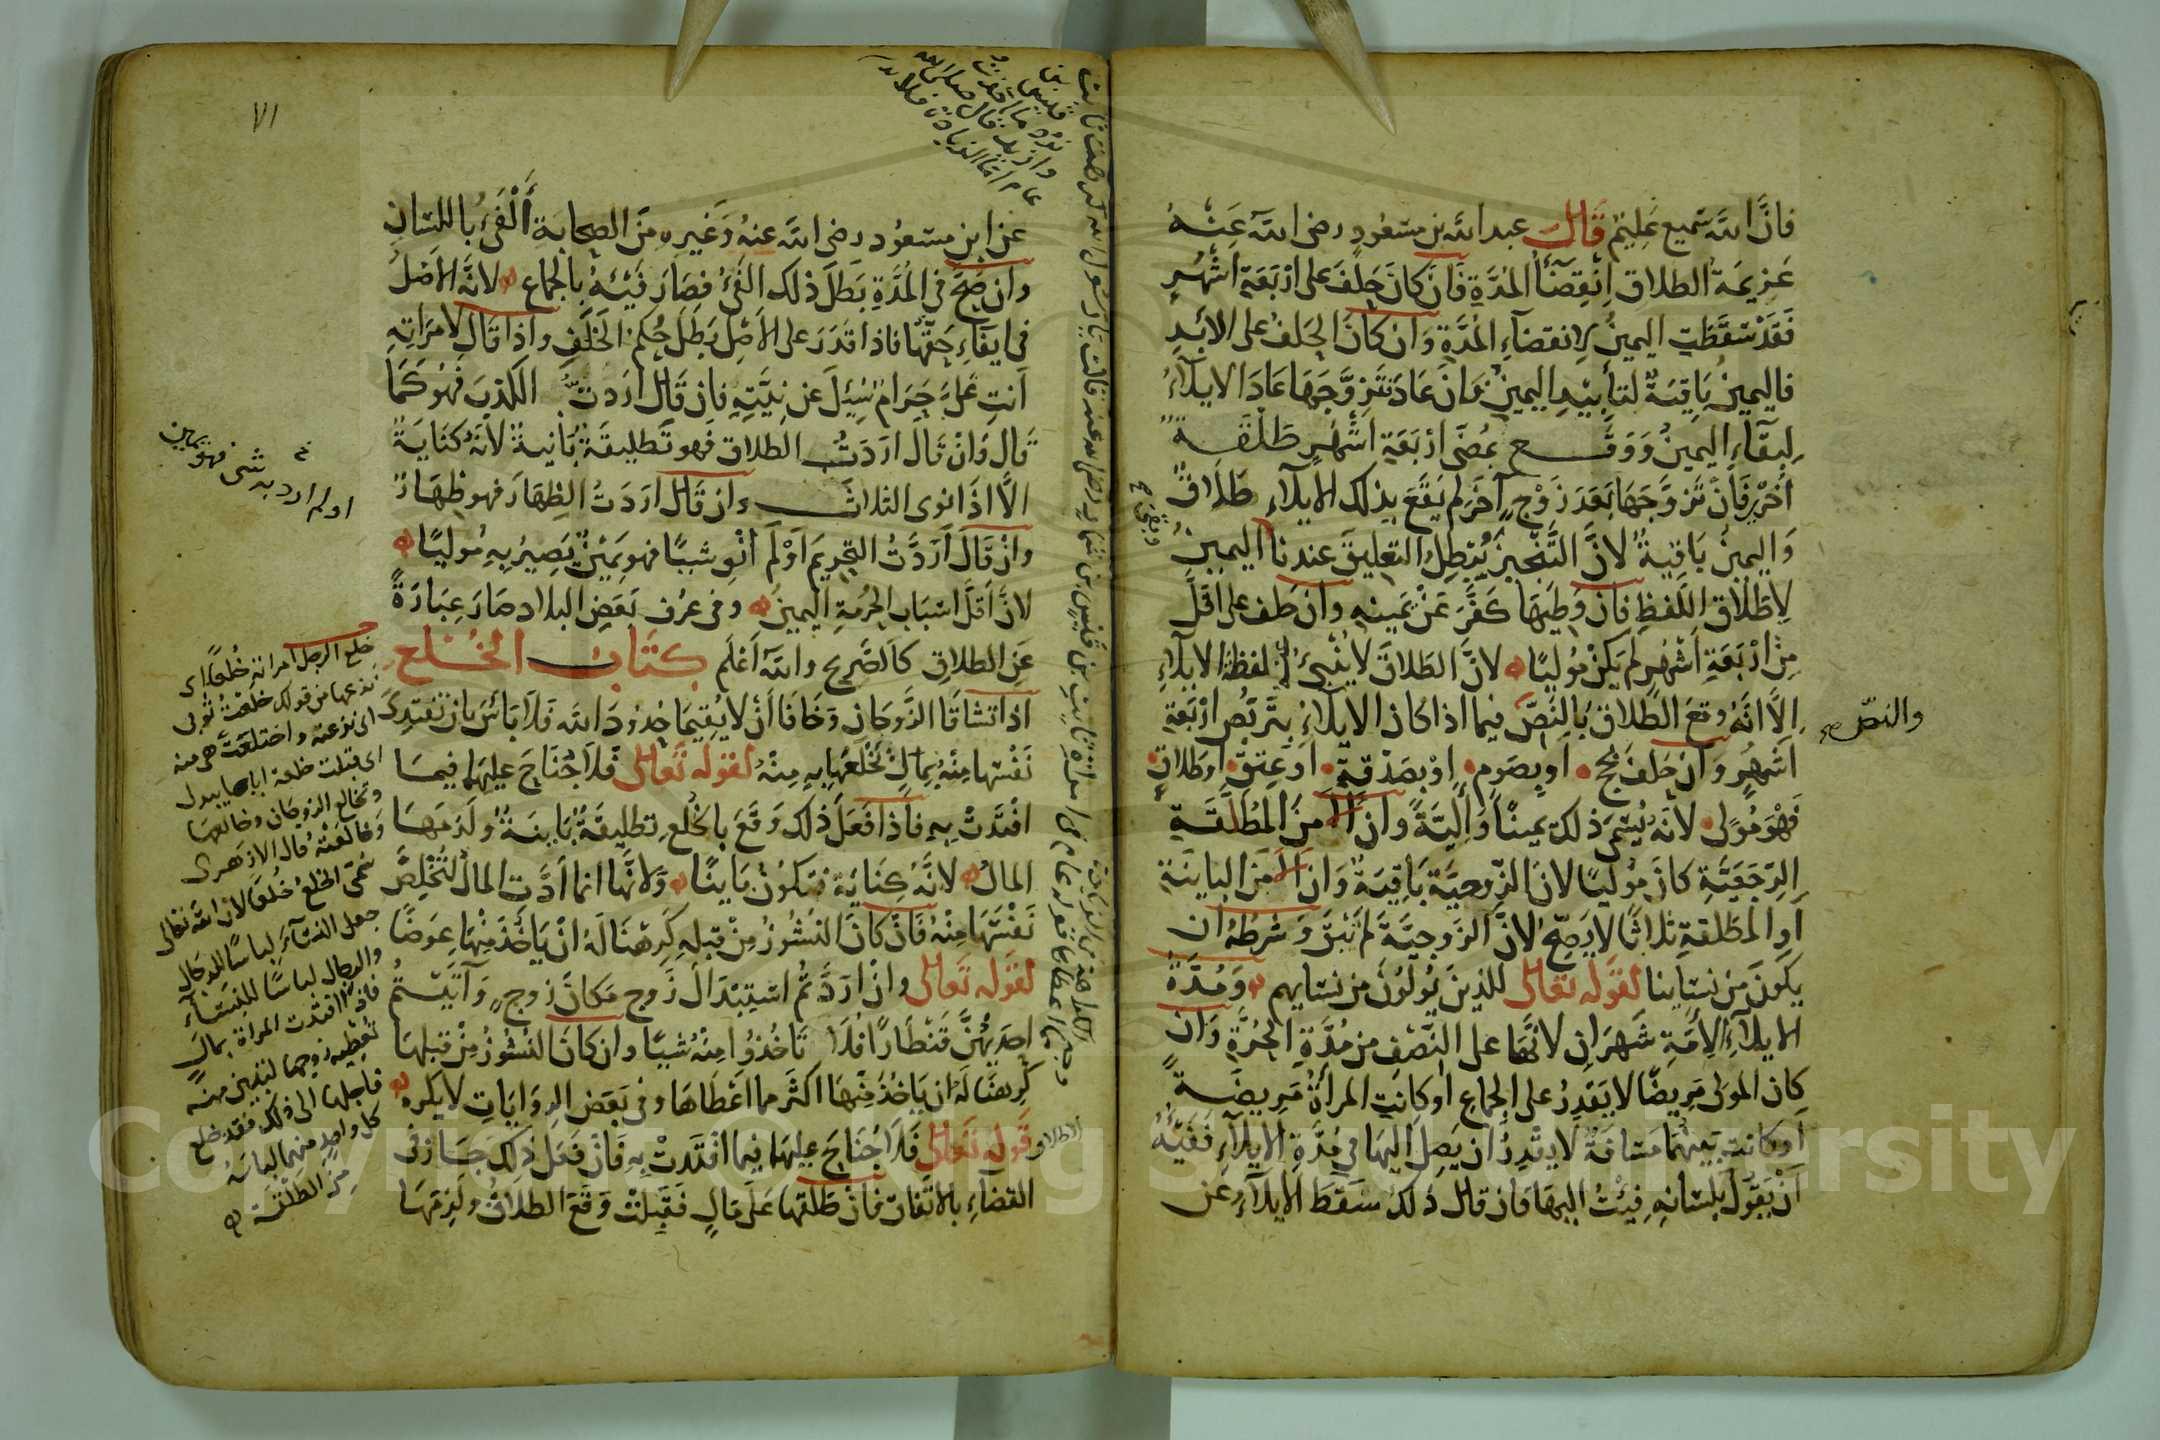 فانَّ الله سَميع عَليمٌ قال عبد الله بن مسعُودٍ رضى الله عَنهُ
عَزيمَة الطلاق اِنقِضَآءُ المُدَّةِ فَانْ كانَ حَلَفَ على اربَعَةِ اشهُرٍ
فَقَدْ سَقَطَتِ اليمينُ لِانقضآءِ المُدَّةِ وَانْ كانَ الحَلفُ على الابَدِ
فاليمينُ بَاقيَةٌ لتَأبيْدِ اليمين وَانْ عَادَ فَتَزوَّجَهَا عَادَ الايلآءُ
لِبقَآءِ اليمينُ وَوَقَع بمُضَى ارْبَعَةِ اشْهُرٍ طَلْقَةٌ
اُخْرٰى فَاِنْ تَزوَّجَهَا بَعَدَ زَوْجٍ آخَرَ لم يَقَعْ بذلك الايلآءِ طَلَاقٌ
وَاليمينُ بَاقِيَةٌ لانَّ التَّنْجِيزَ يُبْطِلُ التعليقَ عندنا اليمينُ
لِاطْلَاقِ اللَّفظِ فان وَطِيَهَا كَفَّرَ عَنْ يَمينهِ وان حلف على اقَلَّ
مِنْ ارْبَعَةِ اَشْهُرٍ لم يَكنْ مُوليًا لانَّ الطلاقَ لايُنْبِئُ لفظة الايلآءِ
اِلَّا انَّهُ وقعَ الطّلاق بالنَّصِّ فيما اذا كان الايلآءُ بتَربّصِ ارْبَعَةِ
اَشهُرٍ وَانْ حَلفَ بحجٍ او بصَومٍ اوْ بصَدْقةٍ اَو عِتقٍ او طلاقٍ
فَهْوَ مُولٍى لانَّهُ يُسَمَّى ذلك يمينًا وَأليَّةً وان آلَى مِنَ المُطَلَّقَةِ
الرَّجْعَيّةِ كانَ مُوليًا لانَّ الزّوجيَّة بَاقِيَةٌ وَان آلى مِنَ الباينَةِ
اَوِ المطَلَّقةِ ثلاثًا لا يَصِحُّ لانَّ الزَوجيَّة لم تَبْقَ وَشَرطُهُ ان
يكونَ مِن نسَآينا لقوله تعالى للذينَ يُولُوُنَ مِن نسَايهم وَمُدَّةُ
الايلآءِ الامَةِ شَهرَانِ لانَّها على النّصْفِ من مُدَّةِ الحُرَّةِ وَان
كان المولى مَريضًا لا يَقدِرُ على الجماعِ او كانتِ المرأةُ مَريضَةً
او كانت بينهُما مَسَافَةٌ لا يقْدِرُ ان يَصِلَ اليهَا في مُدَّةِ الايلآءِ فَفَيْئُهُ
اَنْ يَقوُلَ بلسَانهِ فِيئتُ اليهَا فان قال ذلك سَقَطَ الايلآءُ عن
والنصّ صح
٧١
عَن ابن مسعُود رضى الله عنهُ وَغَيرهِ منَ الصحابَة اَلْفَىْءُ باللسَانِ
وان صَحَّ في المُدَّةِ بَطَلَ ذلك الفَىءُ فصَارَ فَيْئهُ بالجماعِ لانَّهُ الاَصْلُ
في ايفَآءِ حَقّهَا فاذا قدَرَ على الاَصْلِ بَطلَ حُكم الخَلَفِ واذا قالَ لامرَاتهِ
اَنتِ عَلىَّ حَرَامٌ سُئِلَ عن نِيَّتِهِ فان قَال ارَدتُّ الكذِبَ فَهُوَ كَمَا
قَال وَانْ قَالَ ارَدتُ الطلاق فَهو تَطليقَةٌ بَاينةٌ لانَّهُ كنَايَةٌ
الّا اذا نوى الثلاثَ وان قال ارَدَتُ الظِهَارَ فهو ظِهَارٌ
وانْ قَالَ اَرَدتُ التحريمَ اَوْ لمَ اَنْوِ شيئًا فهو يَميْنٌ يَصِيرُ بهِ مُوليًا
لانَّ اَقَلَّ اسْبَابِ الحُرمَةِ اليَمينُ وفى عرُف بَعضِ البلاد صَارَ عِبَارَةً
عَن الطلاقِ كالصَّريحِ والله اَعْلَم كتَابُ الخُلْع
اذا تشاقَّا الزَّوجَان وَخافَا اَنْ لا يُقيمَا حُدُودَ الله فَلَا بَأسَ بان تفتدىَ
نَفْسَها مِنْهُ بمالٍ يخْلعُها بهِ مِنْهُ لقوله تَعالى فَلَا جُنَاحَ عليهما فيمَا
افْتدَتْ بهِ فاذا فعَلَ ذلك وَقَعَ بالخُلع تطليقَةٌ بَاينَةٌ ولَزمَهَا
المالُ لانَّهُ كِنايَة فتكوُنُ بَاينًا وَلانَّها انما اَدَّت المالَ لتُخلِّصَ
نَفْسَهَا مِنْهُ فَانْ كانَ النشُوزُ مِنْ قبلهِ كَرِهْنَا لَهُ انْ يَأخذَ مِنْهَا عِوَضًا
لقوله تَعالى وانْ ارَدتُّمُ اسْتِبْدَالَ زَوجٍ مَكانَ زوجٍ وَآتيْتُمُ
اِحدٰيهُنَّ قنطارًا فلَا تَاخُذُوا منْهُ شيئًا وان كانَ النشوُزُ مِنْ قبلهَا
كَرِهنَا لهَ ان يَاخُذَ مِنهَا اكثَر مما اعْطَاهَا وفى بَعَضِ الرِوَايَاتِ لا يكره
قَوله تَعالى فَلَا جُنَاحَ عليهما فيما افتَدتْ بهِ فَانْ فَعَلَ ذلكَ جَازَ في
القضَآءِ بالاتفاق فَانْ طَلّقَها عَلى مَالٍ فَقَبِلَتْ وَقَعَ الطلاقُ ولَزِمَهَا
او لم ارد به شئ فهو يمين
خلع الرجل امراته خُلعًا اى
نزعها من قولك خلعْتُ ثوبى
اى نزعته واختلعَت هى منه
اى قبلت خلعه اياها ببدل
وتخالع الزوجان وخالعها
وخالعته قال الازهرى
سُمّى الخلعُ خُلعًا لان الله تعالى
جعل النسَآءَ لباسًا للرجال
والرجال لباسًا للنسَآءِ
فاذا افتدت المراة بمالٍ
تعطيه زوجها لتبين منه
فاجابها الى ذلك فقد خلع
كل واحدٍ منهما لباسَهُ
Copyright © King Saud University